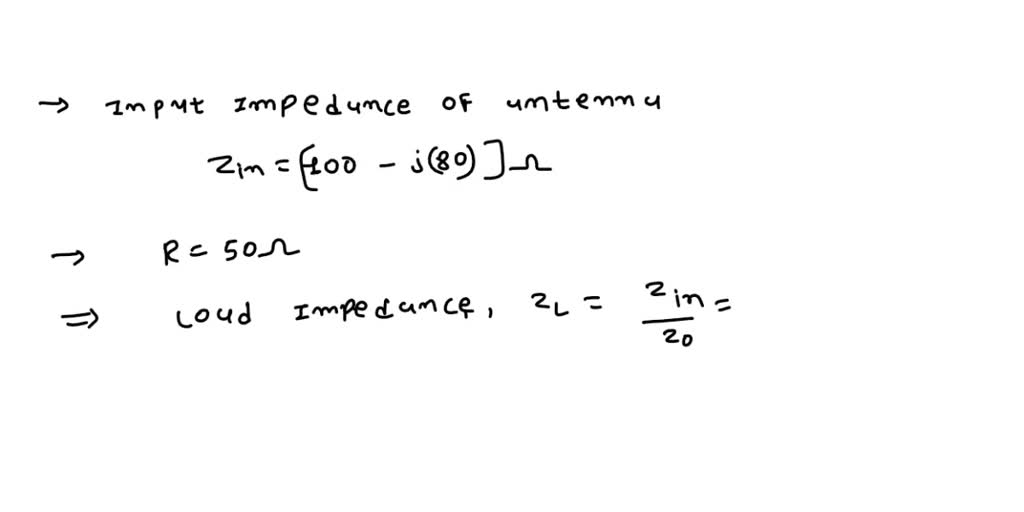 → Input impedance of antenna
Zin = [100 - j(80)] Ω
→ R = 50Ω
⇒ Load Impedance, ZL = Zin/Z0 =